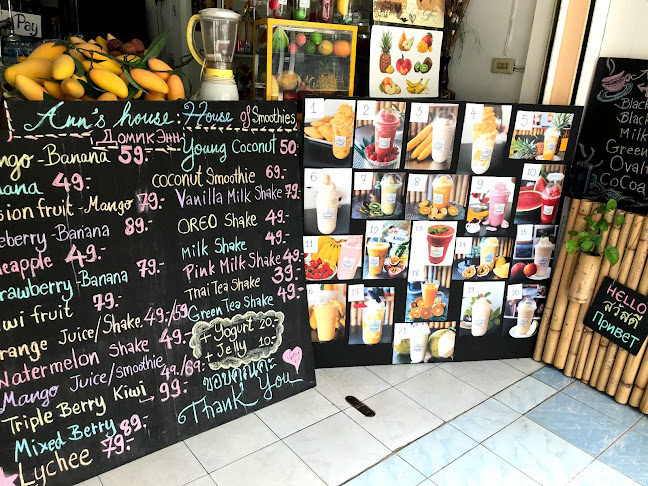 Pay
Ann's house : House of Smoothies
Домик Энн
ngo - Banana 59.-
nana 49.-
ssion fruit - Mango 79.-
eberry - Banana 89.-
neapple 49.-
trawberry - Banana 79.-
iwi fruit 79.-
range Juice/Shake 49.-/59
Watermelon Shake 49.-
Mango Juice/Smoothie 49.-/
Triple Berry Kiwi 99.-
Mixed Berry 89.-
Lychee 79.-
Young Coconut 50
coconut Smoothie 69.-
Vanilla Milk Shake 79.-
OREO Shake 49.-
Milk Shake
Pink Milk Shake 49.-
Thai Tea Shake 39.-
Green Tea Shake 49.-
+ Yogurt 20.-
+ Jelly 10.-
ขอบคุณค่ะ
Thank You
1 2 3 4 5
6 7 8 9 10
11 12 13 14 15
16 17 18 19 20
21
Black
Black
Milk
Green
Oval
CoCoa
HELLO
สวัสดี
Привет